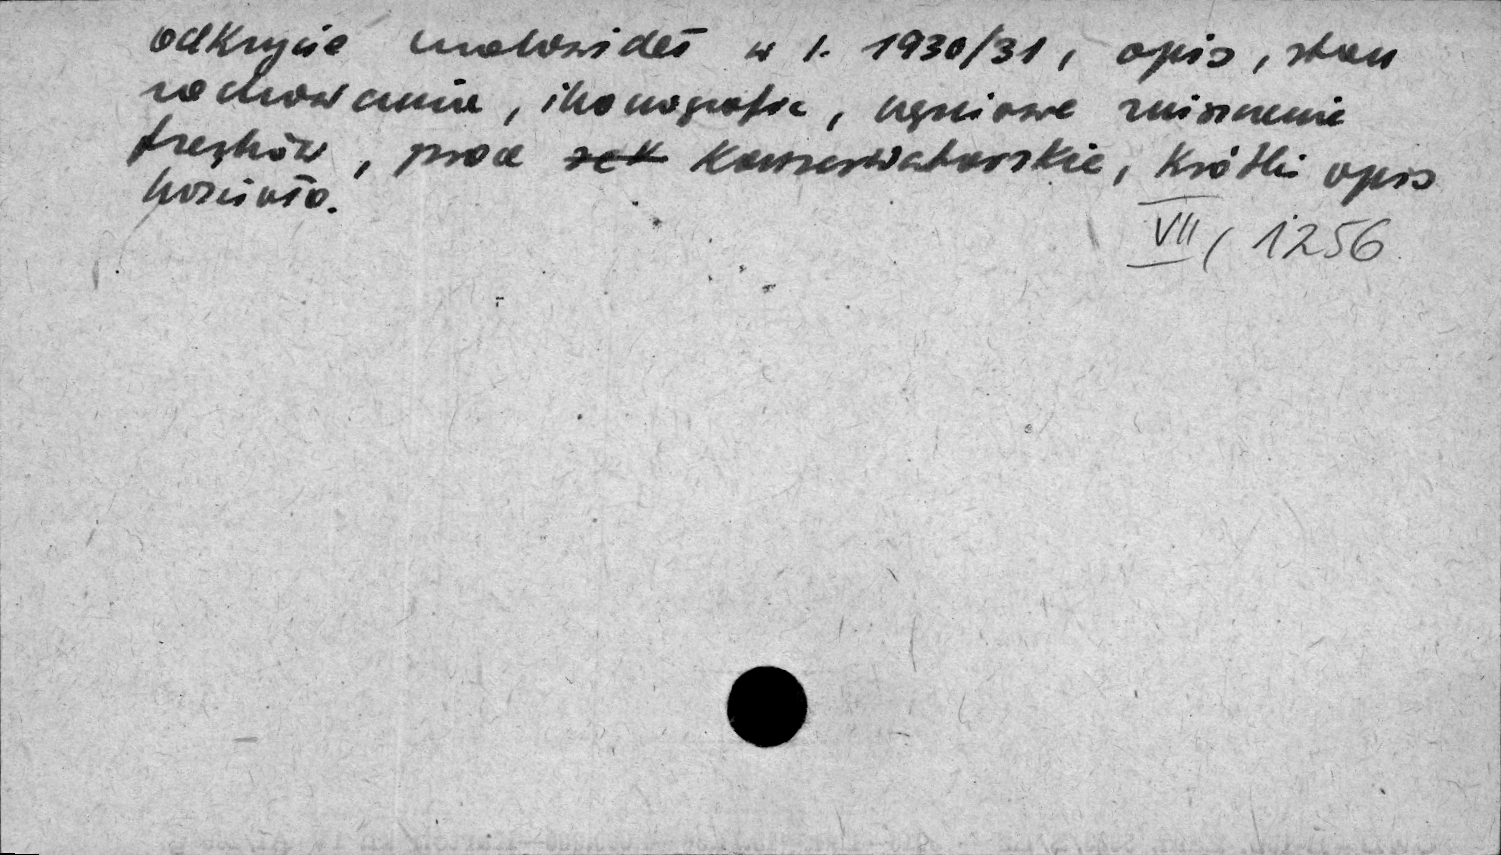 odkrycie malowideł w l. 1930/31, opis, stan
zachowania, ikonografia, zniszczenie
fresków, prace konserwatorskie, krótki opis
kościoła.
VII / 1256